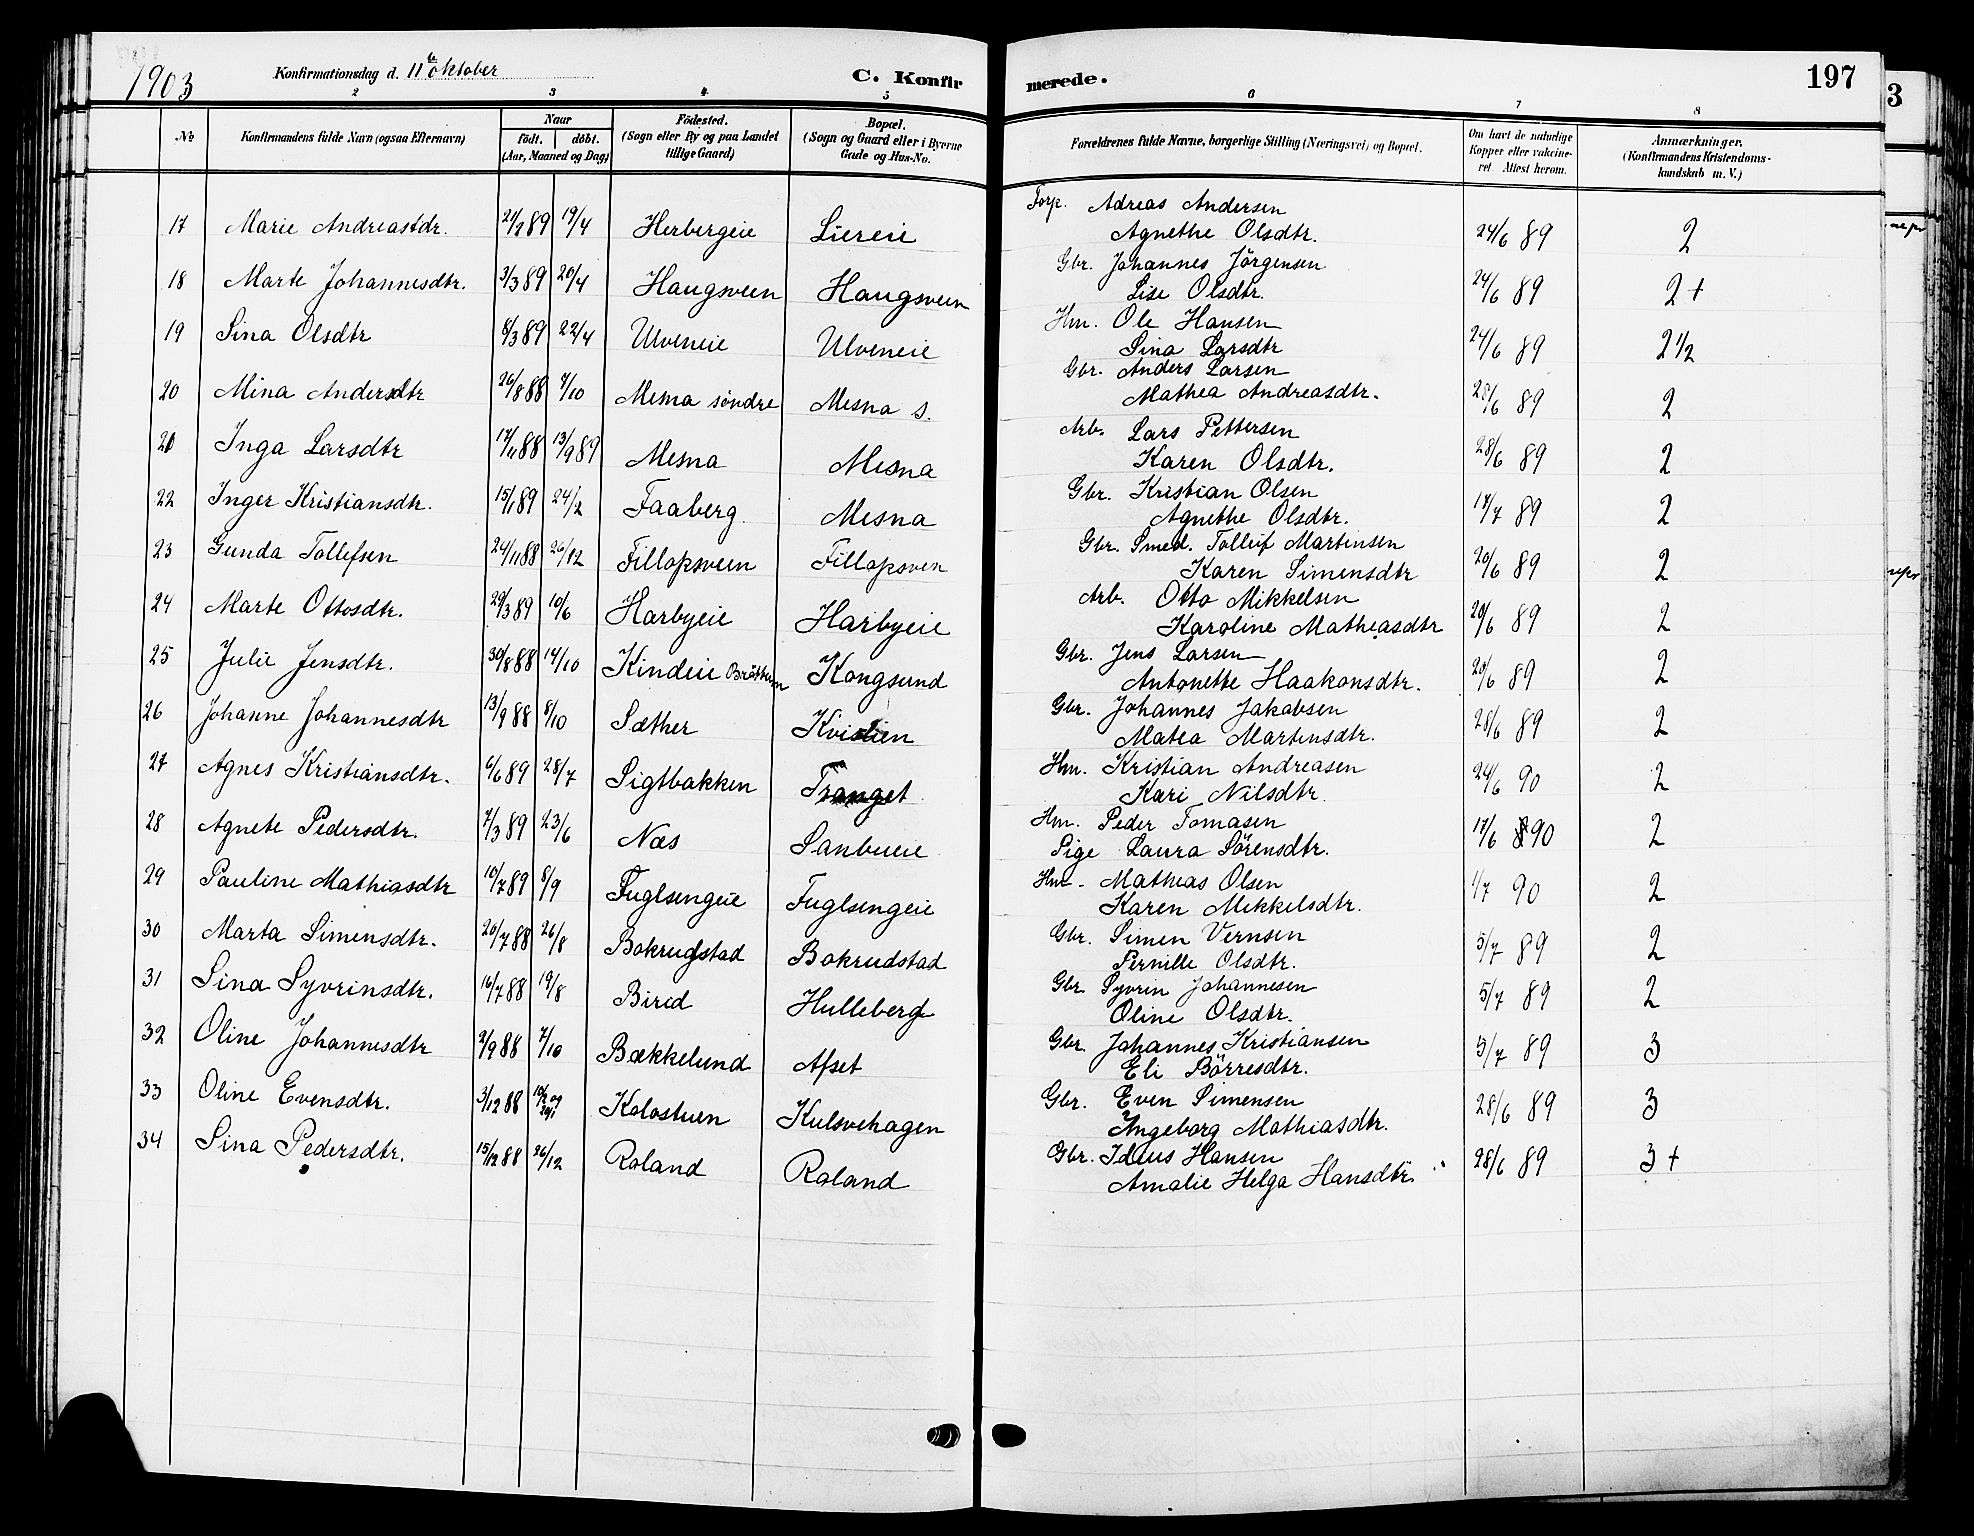 1903
Konfirmationsdag d. 11te oktober
C. Konfirmerede.
197
2 3 4 5 6 7 8
№ Konfirmandens fulde Navn (ogsaa Efternavn) Naar født. døbt. (Aar, Maaned og Dag) Fødested. (Sogn eller By og paa Landet tillige Gaard) Bopæl. (Sogn og Gaard eller i Byerne Gade og Hus-No. Forældrenes fulde Navne, borgerlige Stilling (Næringsvei) og Bopæl. Om havt de naturlige Kopper eller vakcineret Attest herom. Anmærkninger. (Konfirmandens Kristendomskundskab m.V.)
17 Marie Andreasdtr. 89 19/4 Herbergeie Liereie Adreas Andersen
Agnethe Olsdtr. 24/6 89 2
18 Marte Johannesdtr. 3/3 89 20/4 Haugsveen Haugsveen Gbr. Johannes Jörgensen
Lise Olsdtr. 24/6 89 2+
19 Sina Olsdtr 8/3 89 22/4 Ulveneie Ulveneie Hm. Ole Hansen
Sina Larsdtr 24/6 89 2½
20 Mina Andersdtr 26/8 88 7/10 Mesna söndre Mesna s. Gbr. Anders Larsen
Mathea Andreasdtr. 28/6 89 2
21 Inga Larsdtr 88 13/9 89 Mesna Mesna Arb. Lars Pettersen
Karen Olsdtr. 28/6 89 2
22 Inger Kristiansdtr. 15/1 89 24/2 Faaberg. Mesna Gbr. Kristian Olsen
Agnethe Olsdtr. 17/7 89 2
23 Gunda Tollefsen 24/11 88 26/12 Fillopsveen Fillopsven Gbr. Smed. Tollef Martinsen
Karen Simensdtr 20/6 89 2
24 Marte Ottosdtr. 29/3 89 10/6 Harbyeie Harbyeie Arb. Otto Mikkelsen
Karoline Matheasdtr 20/6 89 2
25 Julie Jensdtr. 30/8 88 14/10 Kindeie Bröttum Kongsund Gbr. Jens Larsen
Antonette Haakonsdtr. 20/6 89 2
26 Johanne Johannesdtr 13/9 88 8/10 Sæther Kvistien Gbr. Johannes Jakobsen
Matea Martinsdtr. 28/6 89 2
27 Agnes Kristiansdtr. 6/6 89 28/7 Sigtbakken Tranget Hm. Kristian Andreasen
Kari Nilsdtr. 24/6 90 2
28 Agnete Pedersdtr. 7/3 89 23/6 Næs Sanbueie Hm. Peder Tomasen
Pige Laura Sörensdtr. 17/6 90 2
29 Pauline Mathiasdtr 10/7 89 8/9 Fuglsengeie Fuglsengeie Hm. Mathias Olsen
Karen Mikkelsdtr. 1/7 90 2
30 Marta Simensdtr. 20/7 88 26/8 Bakrudstad Bakrudstad Gbr. Simen Vernsen
Pernille Olsdtr. 5/7 89 2
31 Sina Syvrinsdtr. 16/7 88 19/8 Birid Hulleberg Gbr. Syvrin Johannesen
Oline Olsdtr. 5/7 89 2
32 Oline Johannesdtr 2/9 88 7/10 Bækkelund Afset Gbr. Johannes Kristiansen
Eli Börresdtr. 5/7 89 3
33 Oline Evensdtr. 3/12 88 Kolostuen Kulsvehagen Gbr. Even Simensen
Ingeborg Mathiasdtr. 28/6 89 3
34 Sina Pedersdtr. 15/12 88 26/12 Roland Roland Gbr. Hansen
Amalie Helga Hansdtr. 28/6 89 3+
3